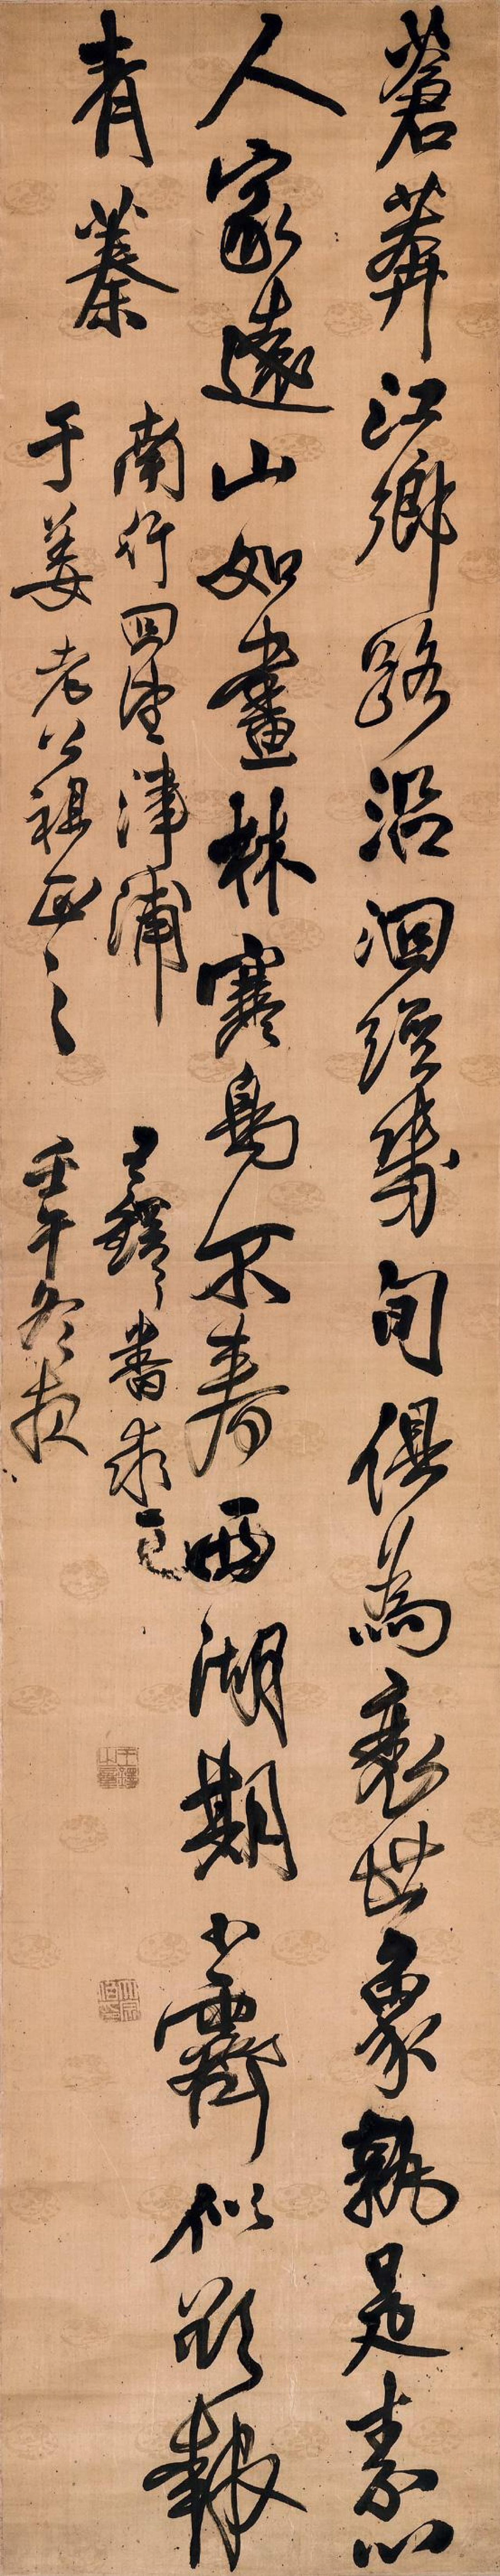 蒼莽江鄉路沿洄經幾旬俱為衰世象孰是素心
人家遠山如畫林寒鳥不春西湖期小霽似欲報
青蓁
南行回望津浦
于姜老公祖正之
王鐸
壬午冬夜